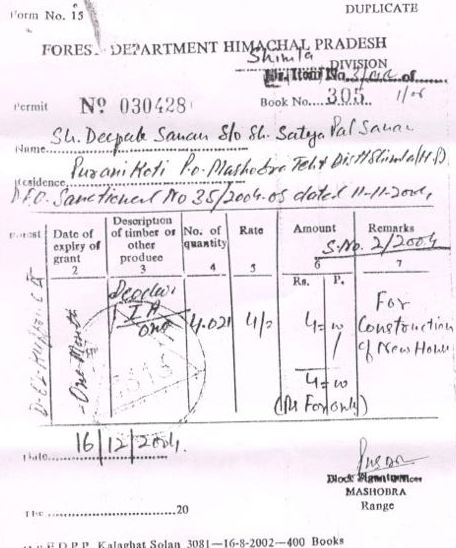 Form No. 15
DUPLICATE
FOREST DEPARTMENT HIMACHAL PRADESH
Shimla
DIVISION
Permit No 030428
Book No.... 305
Name Sh. Deepak Sanan S/o Sh. Satya Pal Sanan
Residence Purani Koti P.o. Mashobra Teh & Distt Shimla (H.P)
D.F.O. Sanctioned No 35/2004-05 dated 11-11-2004
Forest
Date of expiry of grant
Description of timber or other produce
No. of quantity
Rate
Amount
Remarks
S.No. 2/2004
2 3 4 5 6 7
Rs. P.
One Month
Deodar
I A
one
4.021
4/=
4=00
For
Construction
of New House
4=00
(Rs Four only)
Date 16/12/2004.
Block
MASHOBRA
Range
The ..................20
Kalaghat Solan 3081—16-8-2002—400 Books